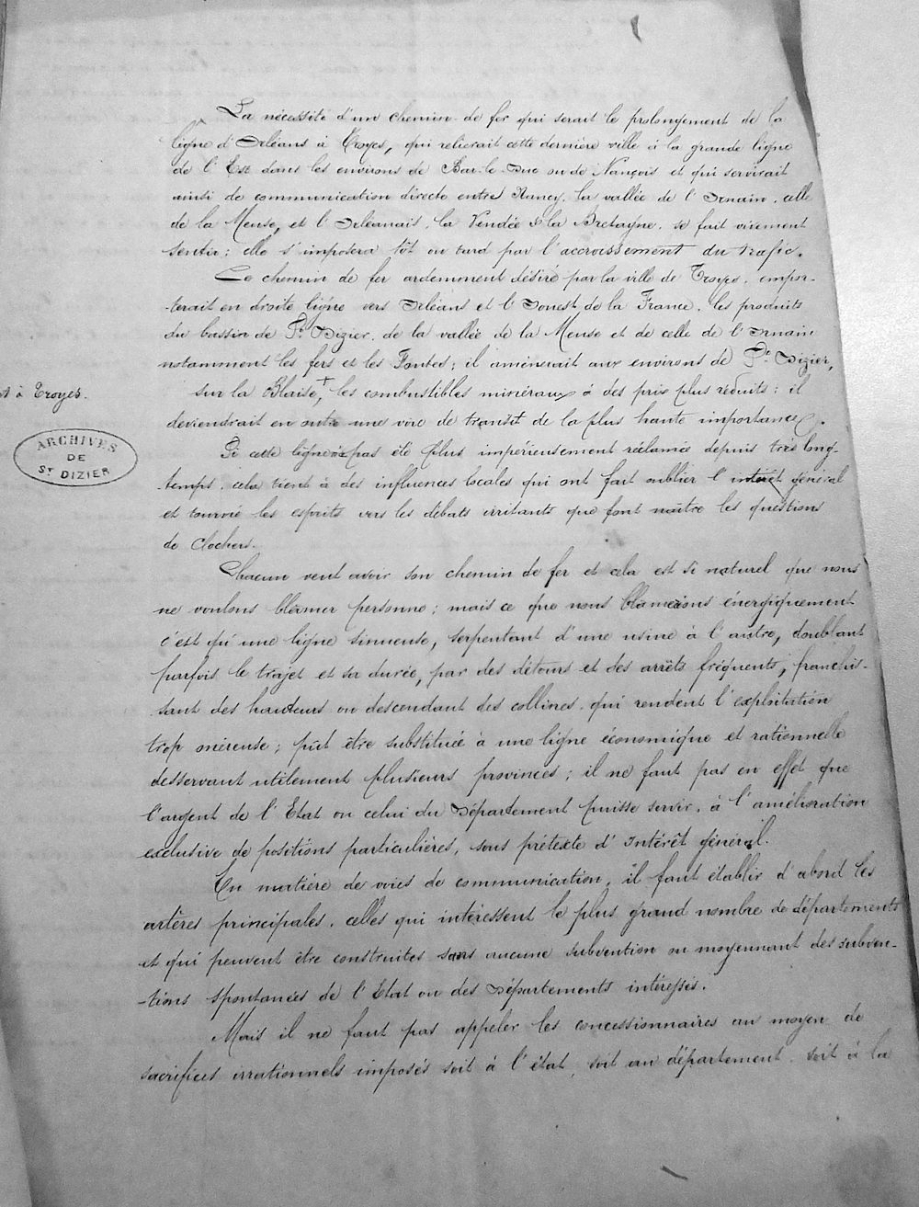 La nécessité d'un chemin de fer qui serait le prolongement de la
ligne d'Orléans à Troyes, qui relierait cette dernière ville à la grande ligne
de l'Est dans les environs de Bar-le-Duc ou de Nançois et qui servirait
ainsi de communication directe entre Nancy, la vallée de l'Ornain, celle
de la Meuse, et l'Orléanais, la Vendée & la Bretagne, se fait vivement
sentir; elle s'imposera tôt ou tard par l'accroissement du trafic.
Ce chemin de fer ardemment désiré par la ville de Troyes, empor-
-terait en droite ligne vers Orléans et l'Ouest de la France, les produits
du bassin de St Dizier, de la vallée de la Meuse et de celle de l'Ornain
notamment les fers et les Fontes; il amènerait aux environs de St Dizier,
à Troyes.
sur la Blaise, les combustibles minéraux à des prix plus réduits: il
deviendrait en outre une voie de transit de la plus haute importance.
ARCHIVES
DE
ST DIZIER
Si cette ligne n'a pas été plus impérieusement réclamée depuis très long-
-temps, cela tient à des influences locales qui ont fait oublier l'intérêt général
et tourné les esprits vers les débats irritants que font naître les questions
de Clochers.
Chacun veut avoir son chemin de fer et cela est si naturel que nous
ne voulons blâmer personne; mais ce que nous blamerions énergiquement
c'est qu'une ligne sinueuse, serpentant d'une usine à l'autre, doublant
parfois le trajet et sa durée, par des détours et des arrêts fréquents, franchis-
-sant des hauteurs ou descendant des collines, qui rendent l'exploitation
trop onéreuse; pût être substituée à une ligne économique et rationnelle
desservant utilement plusieurs provinces; il ne faut pas en effet que
l'argent de l'Etat ou celui du Département puisse servir, à l'amélioration
exclusive de positions particulières, sous prétexte d'Intérêt général.
En matière de voies de communication, il faut établir d'abord les
artères principales, celles qui intéressent le plus grand nombre de départements
et qui peuvent être construites sans aucune subvention ou moyennant des subven-
-tions spontanées de l'Etat ou des Départements intéressés.
Mais il ne faut pas appeler les concessionnaires au moyen de
sacrifices irrationnels imposés soit à l'état, soit au département, soit à la